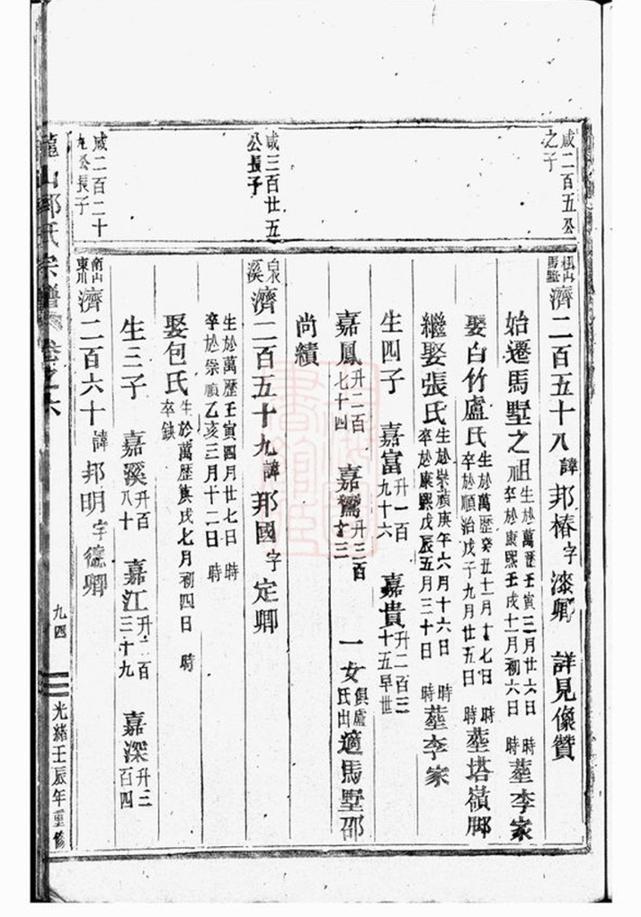 咸二百五公
之子
咸三百廿五
公長子
咸二百二十
九公長子
濟二百五十八諱邦椿字漆卿 詳見像贊
始遷馬墅之祖生於萬歷壬寅三月廿六日 時卒於康熙壬戌十一月初六日 時葬李家
娶白竹盧氏生於萬歷癸丑十一月十七日 時卒於順治戊子九月廿五日 時葬塔嶺脚
繼娶張氏生於崇禎庚午六月十六日 時卒於康熙戊辰五月三十日 時葬李家
生四子 嘉富升一百九十六 嘉貴升二百三十五早世
嘉鳳升二百七十四 嘉鸞升三百 一女俱盧氏出適馬墅邵
尚績
白水溪濟二百五十九諱邦國字定卿
生於萬歷壬寅四月廿七日 時
卒於崇禎乙亥三月十二日 時
娶包氏生於萬歷庚戌七月初四日 時卒缺
生三子 嘉溪升百八十 嘉江升二百三十九 嘉深升三百四
南山東川濟二百六十諱邦明字德卿
山邵氏宗譜 卷之六
九四
光緒壬辰年重修